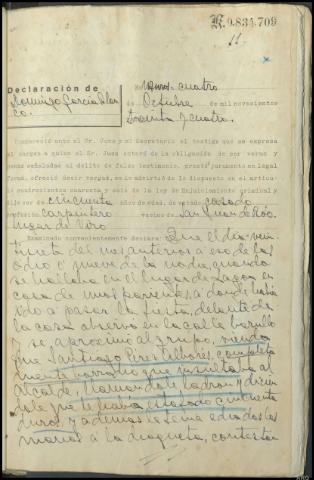 K.9.834,709
11
Declaración de
Domingo Garcia Blan
co.
cuatro
de Octubre de mil novecientos
treinta y cuatro.
Compareció ante el Sr. Juez y mi Secretario el testigo que se expresa
al margen a quien el Sr. Juez enteró de la obligación de ser veraz y
penas señaladas al delito de falso testimonio, prestó juramento en legal
forma, ofreció decir verdad, se le advirtió de lo dispuesto en el artícu-
lo cuatrocientos cuarenta y seis de la ley de Enjuiciamiento criminal y
dijo ser de cincuenta años de edad, de estado casado
profesión carpintero vecino de San
lugar de
Examinado convenientemente declara: Que el dia vein
del mes anterior a eso de las
ocho o nueve de la noche, cuando
se hallaba en el lugar de
casa de unos parientes, a donde habia
ido a pasar la fiesta, delante de
la casa observó en la calle barullo
y se aproximó al grupo, viendo
que Santiago Perez completa
mente borracho que insultaba al
Alcalde, llamandole ladron, y dicien
dole que le habia estafado cincuenta
duros, y ademas le tenia echadas las
manos a la chaqueta, contestan